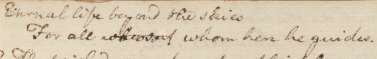 Eternal life beyond the skies
For all whom here he guides.